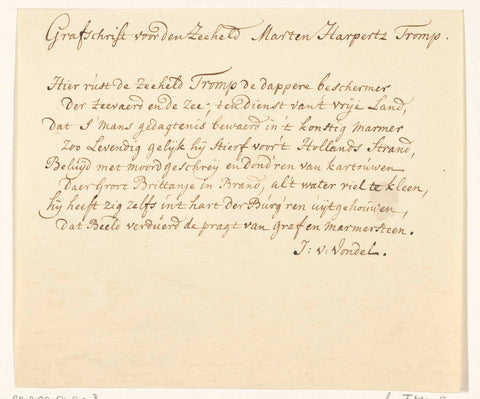 Grafschrift voor den Zeeheld Marten Harpertz Tromp.
Hier rúst de Zeeheld Tromp de dappere beschermer
Der zeevaerd en de zee, ten dienst van't vrije Land,
Dat 's mans gedagtenis bewaerd in't konstig marmer
Zoo Levendig gelijk hij Stierf voor't Hollands Strand,
Belúyd met moordgeschreij en dond'ren van kartoúwen
Daer Groot Brittanje in Brand, alt water viel te kleen,
hij heeft zig zelfs in't hart der Búrg'ren úijtgehoúwen,
Dat Beeld verdúerd de pragt van Graf en marmersteen.
J: v: Vondel.